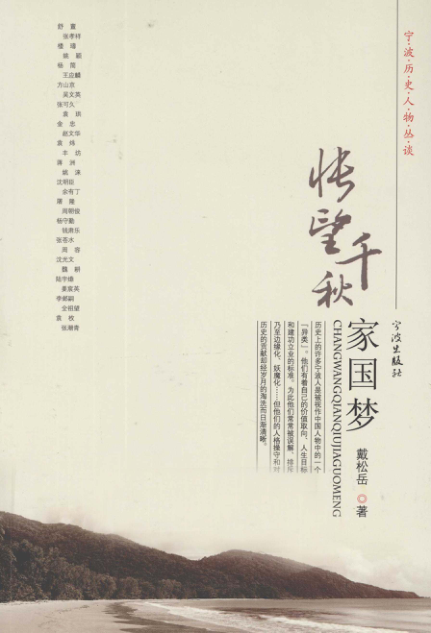 宁·波·历·史·人·物·丛·谈
怅望千秋
家国梦
CHANGWANGQIANQIUJIAGUOMENG
戴松岳 ◎ 著
宁波出版社
历史上的许多宁波人是被视作中国人物中的一个
「异类」。他们有着自己的价值取向、人生目标
和建功立业的标准。为此他们常常被误解、排斥
乃至边缘化、妖魔化……但他们的人格操守和对
历史的贡献却经岁月的淘洗而日渐清晰。
舒亶
张孝祥
楼璹
姚颖
杨简
王应麟
方山京
吴文英
张可久
袁珙
金忠
赵文华
袁炜
丰坊
蒋洲
姚涞
沈明臣
余有丁
屠隆
周朝俊
杨守勤
钱肃乐
张苍水
周容
沈光文
魏耕
姜宸英
李邺嗣
全祖望
袁枚